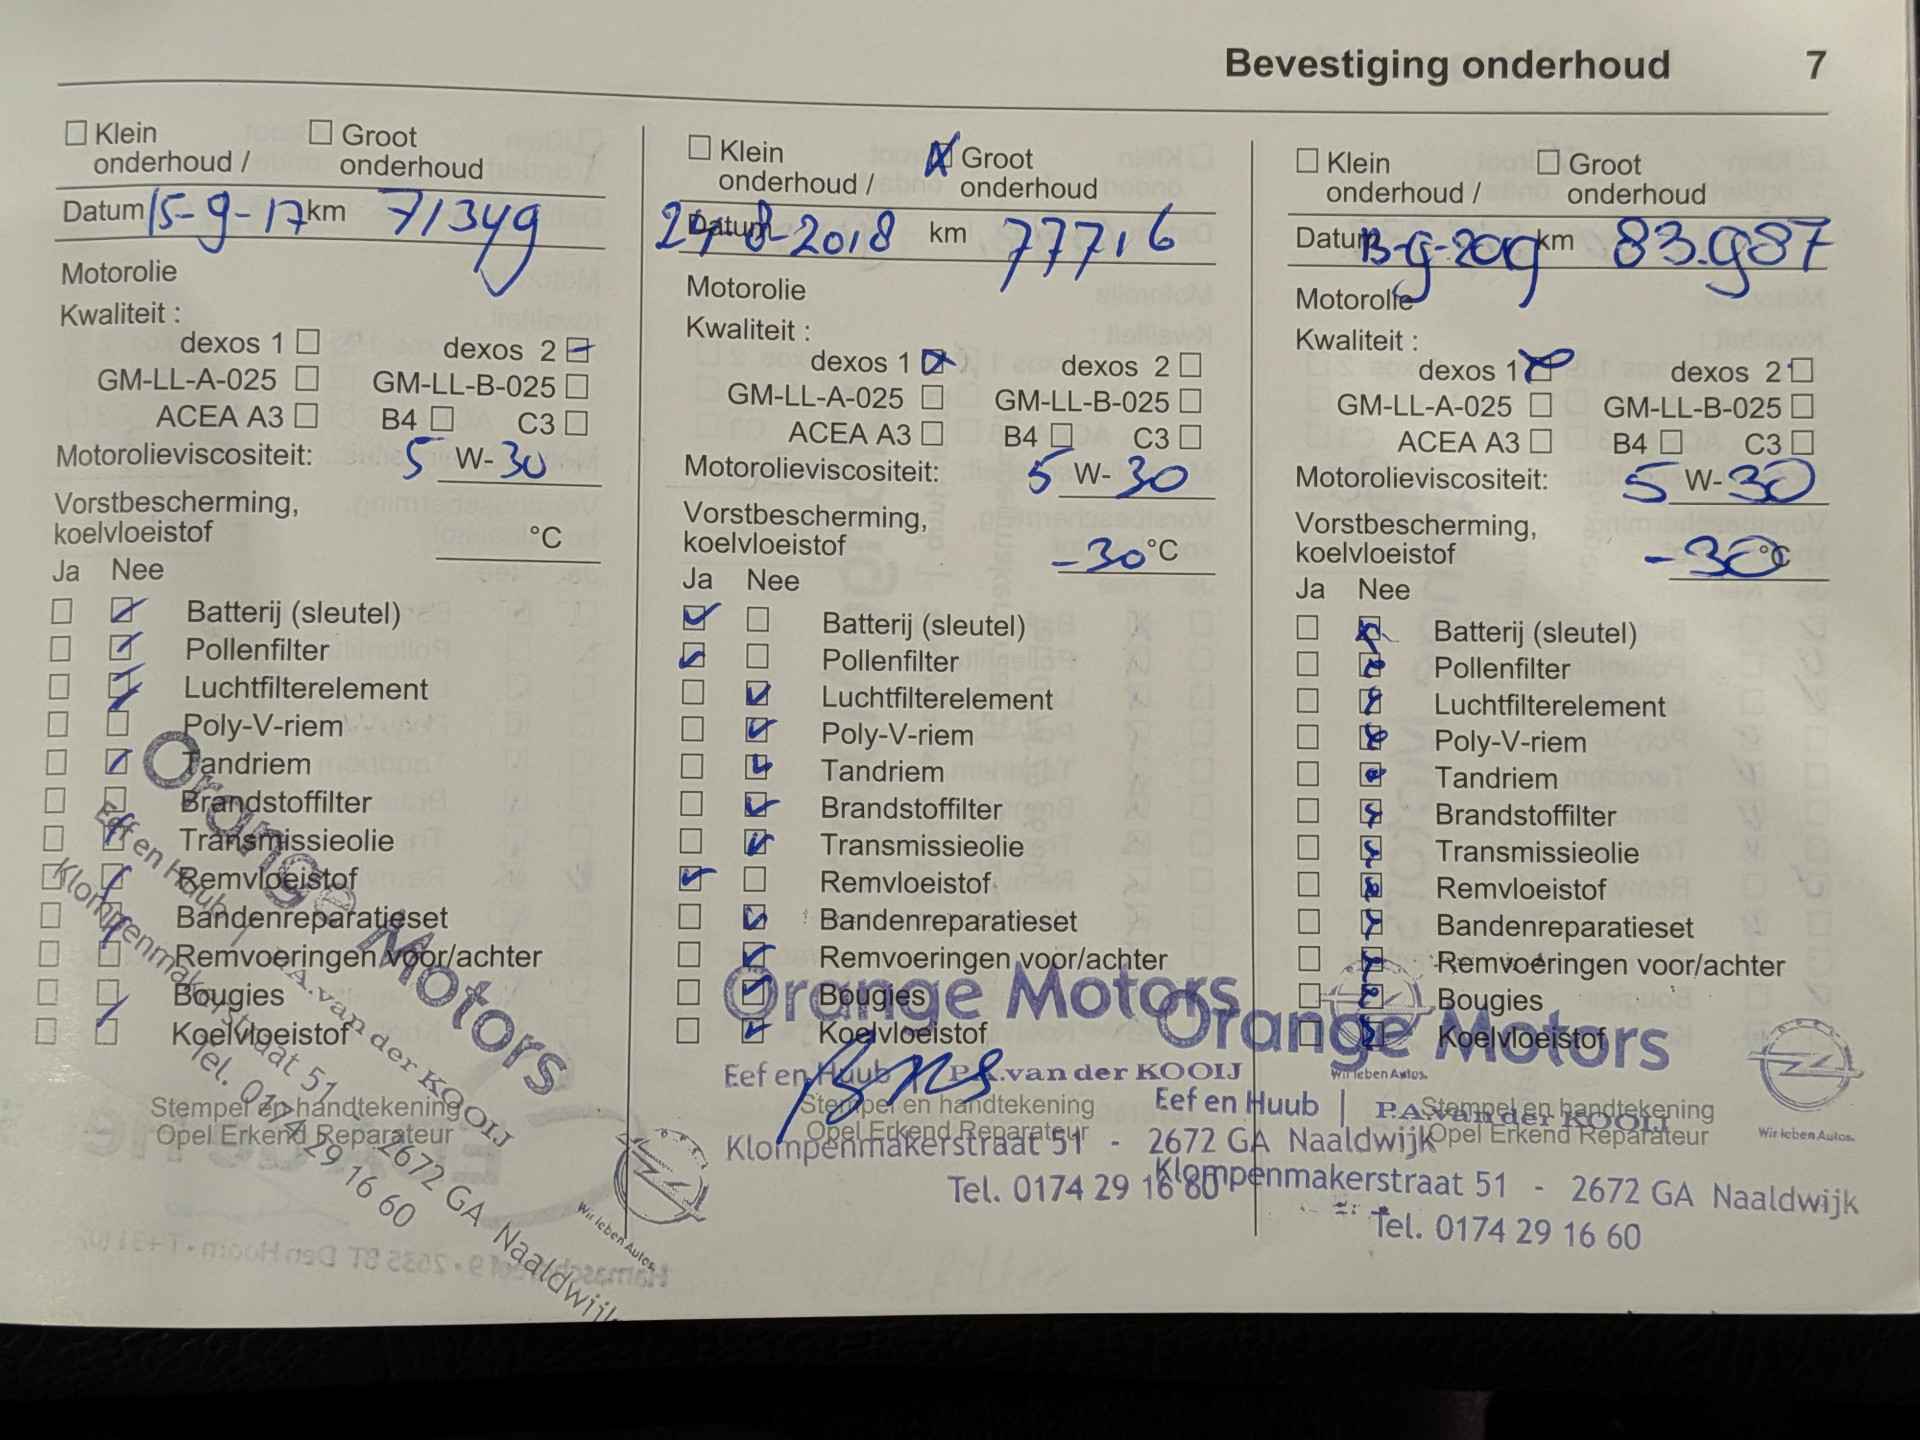 Bevestiging onderhoud 7
Klein onderhoud / Groot onderhoud
Datum 15-9-17 km 71349
Motorolie
Kwaliteit :
dexos 1 dexos 2
GM-LL-A-025 GM-LL-B-025
ACEA A3 B4 C3
Motorolieviscositeit: 5 W-30
Vorstbescherming,
koelvloeistof °C
Ja Nee
Batterij (sleutel)
Pollenfilter
Luchtfilterelement
Poly-V-riem
Tandriem
Brandstoffilter
Transmissieolie
Remvloeistof
Bandenreparatieset
Remvoeringen voor/achter
Bougies
Koelvloeistof
Stempel en handtekening
Opel Erkend Reparateur
Orange Motors
Eef en Huub | P.A.van der KOOIJ
Klompenmakerstraat 51 - 2672 GA Naaldwijk
Tel. 0174 29 16 60
Wir leben Autos.
Klein onderhoud / Groot onderhoud
Datum 8-2018 km 77716
Motorolie
Kwaliteit :
dexos 1 dexos 2
GM-LL-A-025 GM-LL-B-025
ACEA A3 B4 C3
Motorolieviscositeit: 5 W-30
Vorstbescherming,
koelvloeistof -30 °C
Ja Nee
Batterij (sleutel)
Pollenfilter
Luchtfilterelement
Poly-V-riem
Tandriem
Brandstoffilter
Transmissieolie
Remvloeistof
Bandenreparatieset
Remvoeringen voor/achter
Bougies
Koelvloeistof
Stempel en handtekening
Opel Erkend Reparateur
Orange Motors
Eef en Huub | P.A.van der KOOIJ
Klompenmakerstraat 51 - 2672 GA Naaldwijk
Tel. 0174 29 16 60
Wir leben Autos.
Klein onderhoud / Groot onderhoud
Datum 13-9-2019 km 83.987
Motorolie
Kwaliteit :
dexos 1 dexos 2
GM-LL-A-025 GM-LL-B-025
ACEA A3 B4 C3
Motorolieviscositeit: 5 W-30
Vorstbescherming,
koelvloeistof -30 °C
Ja Nee
Batterij (sleutel)
Pollenfilter
Luchtfilterelement
Poly-V-riem
Tandriem
Brandstoffilter
Transmissieolie
Remvloeistof
Bandenreparatieset
Remvoeringen voor/achter
Bougies
Koelvloeistof
Stempel en handtekening
Opel Erkend Reparateur
Orange Motors
Eef en Huub | P.A.van der KOOIJ
Klompenmakerstraat 51 - 2672 GA Naaldwijk
Tel. 0174 29 16 60
Wir leben Autos.